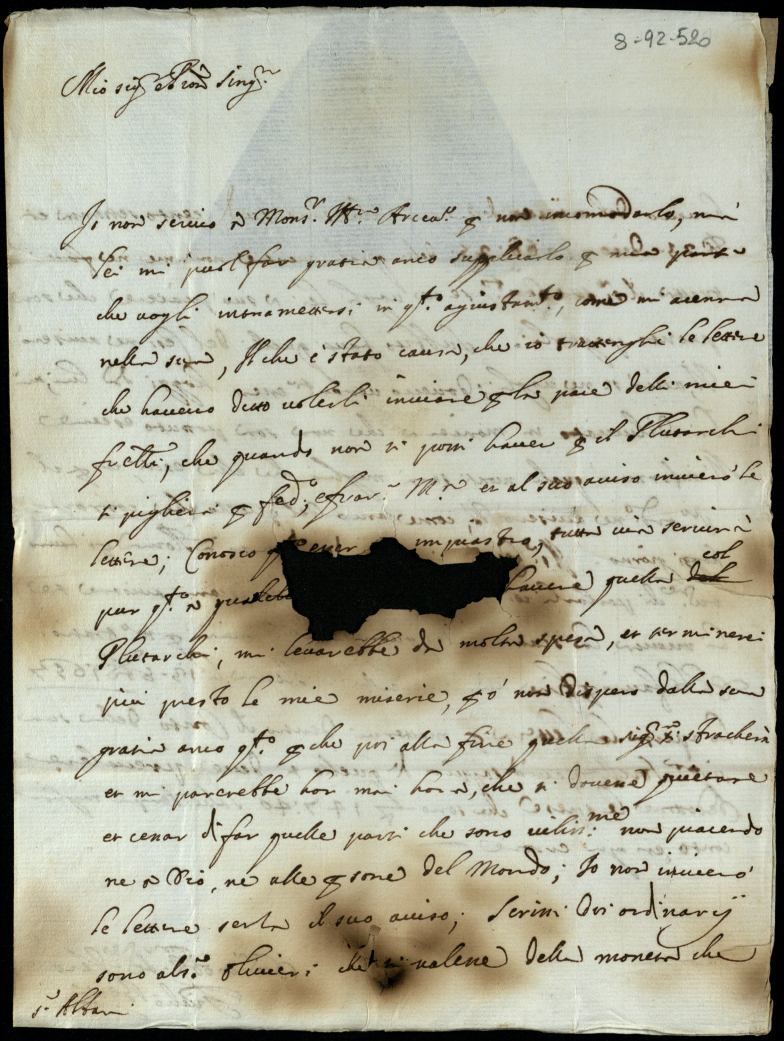 8-92-520
Mio sig.r et Pron Sing.r
Io non scrivo a Mons.r Ill.mo p non incomodarlo, mà
Lei mi puol far gratia anco supplicarlo p mia parte
che vogli intramettersi in q.to agiustam.to, come mi acenna
nella sua, Il che è stato causa, che io trattenghi le lettere
che havevo detto volerli inviare p la pace delli miei
frelli, che quando non si possi haver p il Plutarchi
si piglierà p et al suo aviso invierò le
lettere; Conosco impiastra, tutta via servirà
pur q.to à havere quella col
Plutarchi, mi levarebbe da molta spesa, et terminerei
più presto le mie miserie, non dispero dalla sua
gratia anco q.to p che poi alla fine quella straccherà
et mi parerebbe hor mai hora, che si dovesse quietare
et cessar di far quelle parti che sono vilis.me non piacendo
ne a Dio, ne alle psone del Mondo; Io non invierò
le lettere senza il suo aviso; Scrissi doi ordinarij
sono al s.r Olivieri che si valesse della moneta che
s.r Albani